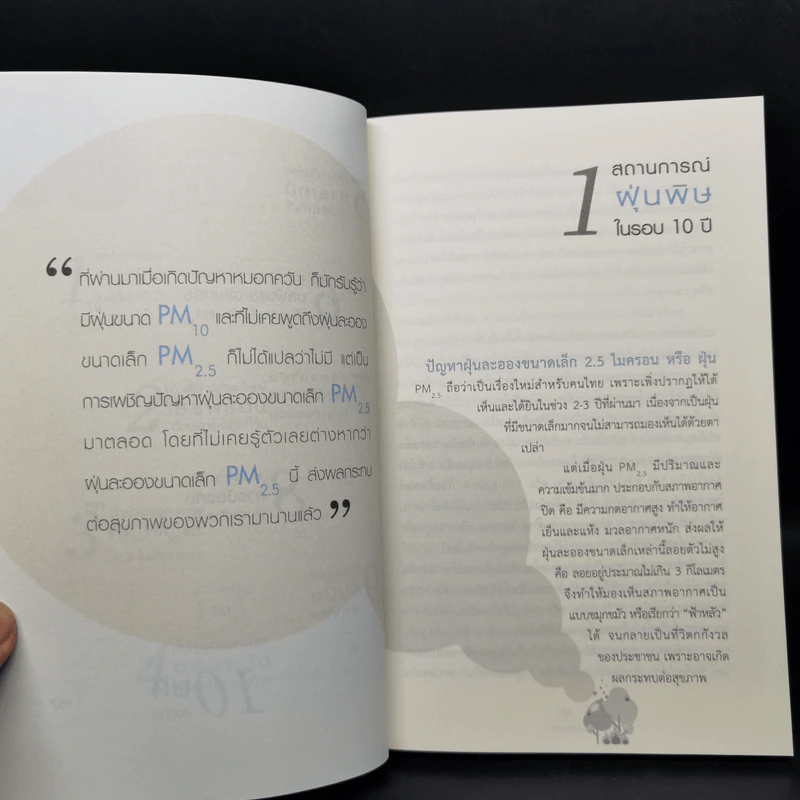 “ ที่ผ่านมาเมื่อเกิดปัญหาหมอกควัน ก็มักรับรู้ว่า
มีฝุ่นขนาด PM10 และที่ไม่เคยพูดถึงฝุ่นละออง
ขนาดเล็ก PM2.5 ก็ไม่ได้แปลว่าไม่มี แต่เป็น
การเผชิญปัญหาฝุ่นละอองขนาดเล็ก PM2.5
มาตลอด โดยที่ไม่เคยรู้ตัวเลยต่างหากว่า
ฝุ่นละอองขนาดเล็ก PM2.5 นี้ ส่งผลกระทบ
ต่อสุขภาพของพวกเรามานานแล้ว ”
1 สถานการณ์
ฝุ่นพิษ
ในรอบ 10 ปี
ปัญหาฝุ่นละอองขนาดเล็ก 2.5 ไมครอน หรือ ฝุ่น
PM2.5 ถือว่าเป็นเรื่องใหม่สำหรับคนไทย เพราะเพิ่งปรากฏให้ได้
เห็นและได้ยินในช่วง 2-3 ปีที่ผ่านมา เนื่องจากเป็นฝุ่น
ที่มีขนาดเล็กมากจนไม่สามารถมองเห็นได้ด้วยตา
เปล่า
แต่เมื่อฝุ่น PM2.5 มีปริมาณและ
ความเข้มข้นมาก ประกอบกับสภาพอากาศ
ปิด คือ มีความกดอากาศสูง ทำให้อากาศ
เย็นและแห้ง มวลอากาศหนัก ส่งผลให้
ฝุ่นละอองขนาดเล็กเหล่านี้ลอยตัวไม่สูง
คือ ลอยอยู่ประมาณไม่เกิน 3 กิโลเมตร
จึงทำให้มองเห็นสภาพอากาศเป็น
แบบขมุกขมัว หรือเรียกว่า “ฟ้าหลัว”
ได้ จนกลายเป็นที่วิตกกังวล
ของประชาชน เพราะอาจเกิด
ผลกระทบต่อสุขภาพ